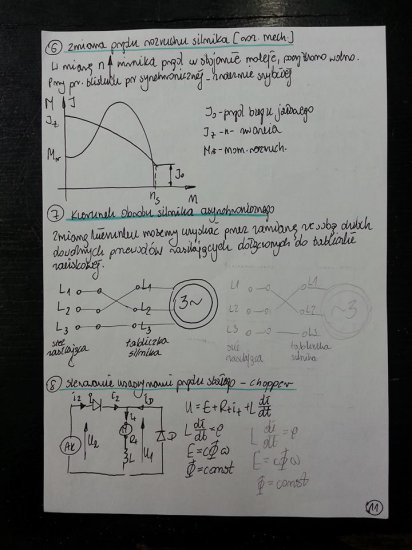 ⑥ Zmiana prądu rozruchu silnika [nor. mech.]
W miarę n↑ wirnika prąd w stojanie maleje, początkowo wolno.
Przy pr. bliskiej pr synchronicznej - znacznie szybciej
M J
Jz
Mr
J0
ns
n
J0 - prąd biegu jałowego
Jz - n - zwarcia
Mr - mom. rozruch.
⑦ Kierunek obrotu silnika asynchronicznego
Zmianę kierunku możemy uzyskać przez zamianę ze sobą dwóch
dowolnych przewodów zasilających dołączonych do tabliczki
zaciskowej.
L1 L1
L2 L2
L3 L3
3~
sieć zasilająca
tabliczka silnika
L1 L1
L2 L2
L3 L3
3~
sieć zasilająca
tabliczka silnika
⑧ sterowanie maszynami prądu stałego - chopper
U = E + Rtit + L di/dt
L di/dt = 0
E = cΦω
Φ = const
L di/dt = 0
E = cΦω
Φ = const
AK
U2
it
Rt
L
U1
D
11